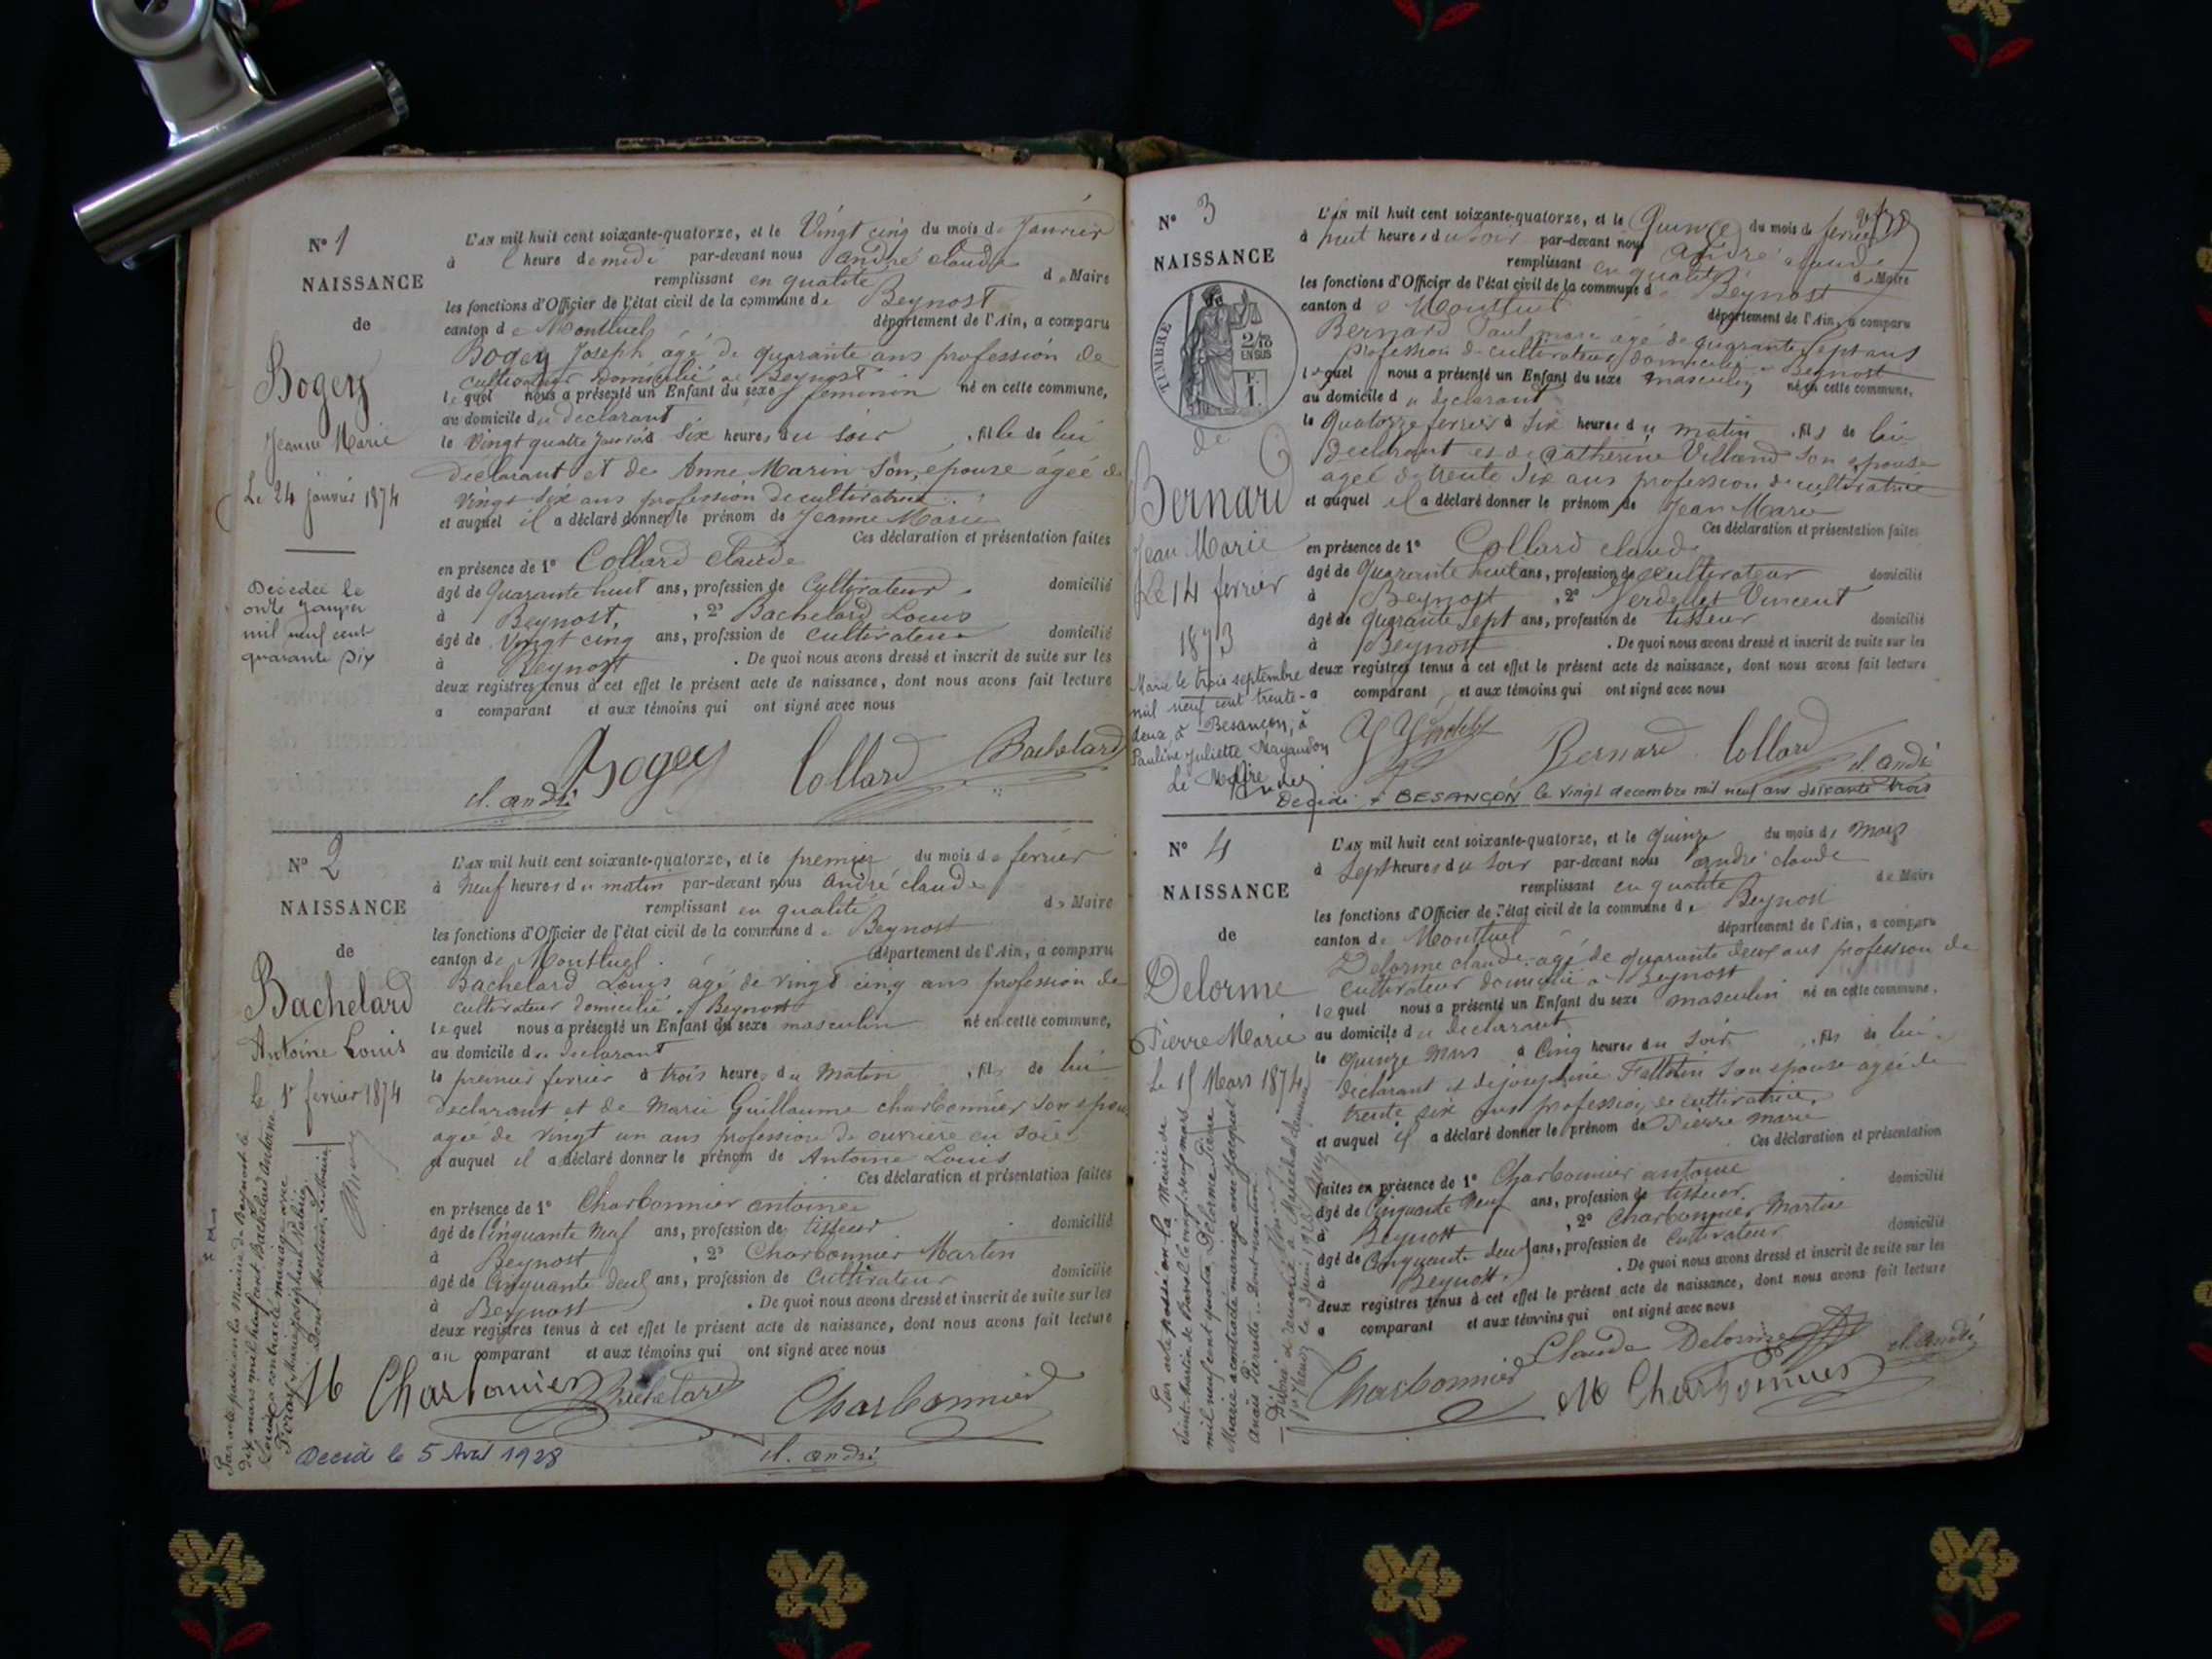 N° 1
NAISSANCE
de
Bogey
Jeanne Marie
Le 24 janvier 1874
Décédée le
onze Janvier
mil neuf cent
quarante six
L'AN mil huit cent soixante-quatorze, et le Vingt cinq du mois de Janvier
à 1 heure de midi par-devant nous andré claude
remplissant en qualité de Maire
les fonctions d'Officier de l'état civil de la commune de Beynost
canton de Montluel département de l'Ain, a comparu
Bogey Joseph âgé de quarante ans profession de
cultivateur domicilié a Beynost
lequel nous a présenté un Enfant du sexe feminin né en cette commune,
au domicile du declarant
le Vingt quatre Janvier à Six heures du soir , fille de lui
declarant et de Anne Marin son epouse âgée de
vingt six ans profession de cultivatrice
et auquel il a déclaré donner le prénom de Jeanne Marie
Ces déclaration et présentation faites
en présence de 1° Collard claude
âgé de Quarante huit ans, profession de Cultivateur domicilié
à Beynost, , 2° Bachelard Louis
âgé de Vingt cinq ans, profession de cultivateur domicilié
à Beynost . De quoi nous avons dressé et inscrit de suite sur les
deux registres tenus à cet effet le présent acte de naissance, dont nous avons fait lecture
a comparant et aux témoins qui ont signé avec nous
Bogey Collard Bachelard
cl. andré
N° 2
NAISSANCE
de
Bachelard
Antoine Louis
le 1er fevrier 1874
Par acte passé en la Mairie de Beynost le
dix mars mil neuf cent Bachelard Antoine
Louis a contracté mariage avec
Marie Joséphine
Dont mention
L'AN mil huit cent soixante-quatorze, et le premier du mois de fevrier
à Neuf heures du matin par-devant nous André claude
remplissant en qualité de Maire
les fonctions d'Officier de l'état civil de la commune de Beynost
canton de Montluel département de l'Ain, a comparu
Bachelard Louis âgé de vingt cinq ans profession de
cultivateur domicilié a Beynost
lequel nous a présenté un Enfant du sexe masculin né en cette commune,
au domicile du declarant
le premier fevrier à trois heures du Matin , fils de lui
declarant et de Marie Guillaume charbonnier son epouse
agée de vingt un ans profession de ouvriere en soie
et auquel il a déclaré donner le prénom de Antoine Louis
Ces déclaration et présentation faites
en présence de 1° Charbonnier antoine
âgé de Cinquante Neuf ans, profession de tisseur domicilié
à Beynost , 2° Charbonnier Martin
âgé de Cinquante deux ans, profession de Cultivateur domicilié
à Beynost . De quoi nous avons dressé et inscrit de suite sur les
deux registres tenus à cet effet le présent acte de naissance, dont nous avons fait lecture
au comparant et aux témoins qui ont signé avec nous
M Charbonnier Bachelard Charbonnier
Décédé le 5 Avril 1928 cl. andré
N° 3
NAISSANCE
TIMBRE
2/10
EN SUS
F.
1.
de
Bernard
Jean Marie
Le 14 fevrier
1873
Marié le trois septembre
mil neuf cent trente-
deux, à Besançon, à
Pauline Juliette Mayaudon
Le Maire
L'AN mil huit cent soixante-quatorze, et le Quinze du mois de fevrier
à huit heures du soir par-devant nous André claude
remplissant en qualité de Maire
les fonctions d'Officier de l'état civil de la commune de Beynost
canton de Montluel département de l'Ain, a comparu
Bernard Paul marie agé de quarante sept ans
profession de cultivateur domicilié a Beynost
lequel nous a présenté un Enfant du sexe masculin né en cette commune,
au domicile du declarant
le Quatorze fevrier à Six heures du matin , fils de lui
declarant et de Catherine Villand son epouse
agée de trente Six ans profession de cultivatrice
et auquel il a déclaré donner le prénom de Jean Marie
Ces déclaration et présentation faites
en présence de 1° Collard claude
âgé de Quarante huit ans, profession de cultivateur domicilié
à Beynost , 2° Vincent
âgé de quarante sept ans, profession de tisseur domicilié
à Beynost . De quoi nous avons dressé et inscrit de suite sur les
deux registres tenus à cet effet le présent acte de naissance, dont nous avons fait lecture
a comparant et aux témoins qui ont signé avec nous
Bernard Collard cl. andré
Décédé à BESANÇON le vingt decembre mil neuf cent soixante trois
N° 4
NAISSANCE
de
Delorme
Pierre Marie
Le 15 Mars 1874
Par acte passé en la Mairie de
Saint-Martin de Bavel le vingt neuf mars
mil neuf cent quatre, Delorme Pierre
Marie a contracté mariage avec Jacquet
Anaïs Pierrette. Dont mention
L'AN mil huit cent soixante-quatorze, et le quinze du mois de Mars
à Sept heures du soir par-devant nous andré claude
remplissant en qualité de Maire
les fonctions d'Officier de l'état civil de la commune de Beynost
canton de Montluel département de l'Ain, a comparu
Delorme claude agé de quarante deux ans profession de
cultivateur domicilié a Beynost
lequel nous a présenté un Enfant du sexe masculin né en cette commune.
au domicile du declarant
le quinze Mars à Cinq heures du soir , fils de lui
declarant et de josephine son epouse agée de
trente six ans profession de cultivatrice
et auquel il a déclaré donner le prénom de Pierre marie
Ces déclaration et présentation
faites en présence de 1° Charbonnier antoine
âgé de Cinquante Neuf ans, profession de tisseur domicilié
à Beynost , 2° Charbonnier Martin
âgé de Cinquante deux ans, profession de Cultivateur domicilié
à Beynost . De quoi nous avons dressé et inscrit de suite sur les
deux registres tenus à cet effet le présent acte de naissance, dont nous avons fait lecture
a comparant et aux témoins qui ont signé avec nous
Claude Delorme cl. andré
Charbonnier M Charbonnier